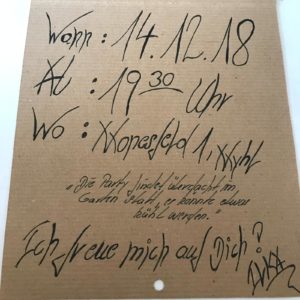 Wann : 14.12.18
Ab : 19 30 Uhr
Wo : 1,
"Die Party findet überdacht im
Garten statt, es könnte etwas
kühl werden."
Ich freue mich auf Dich!